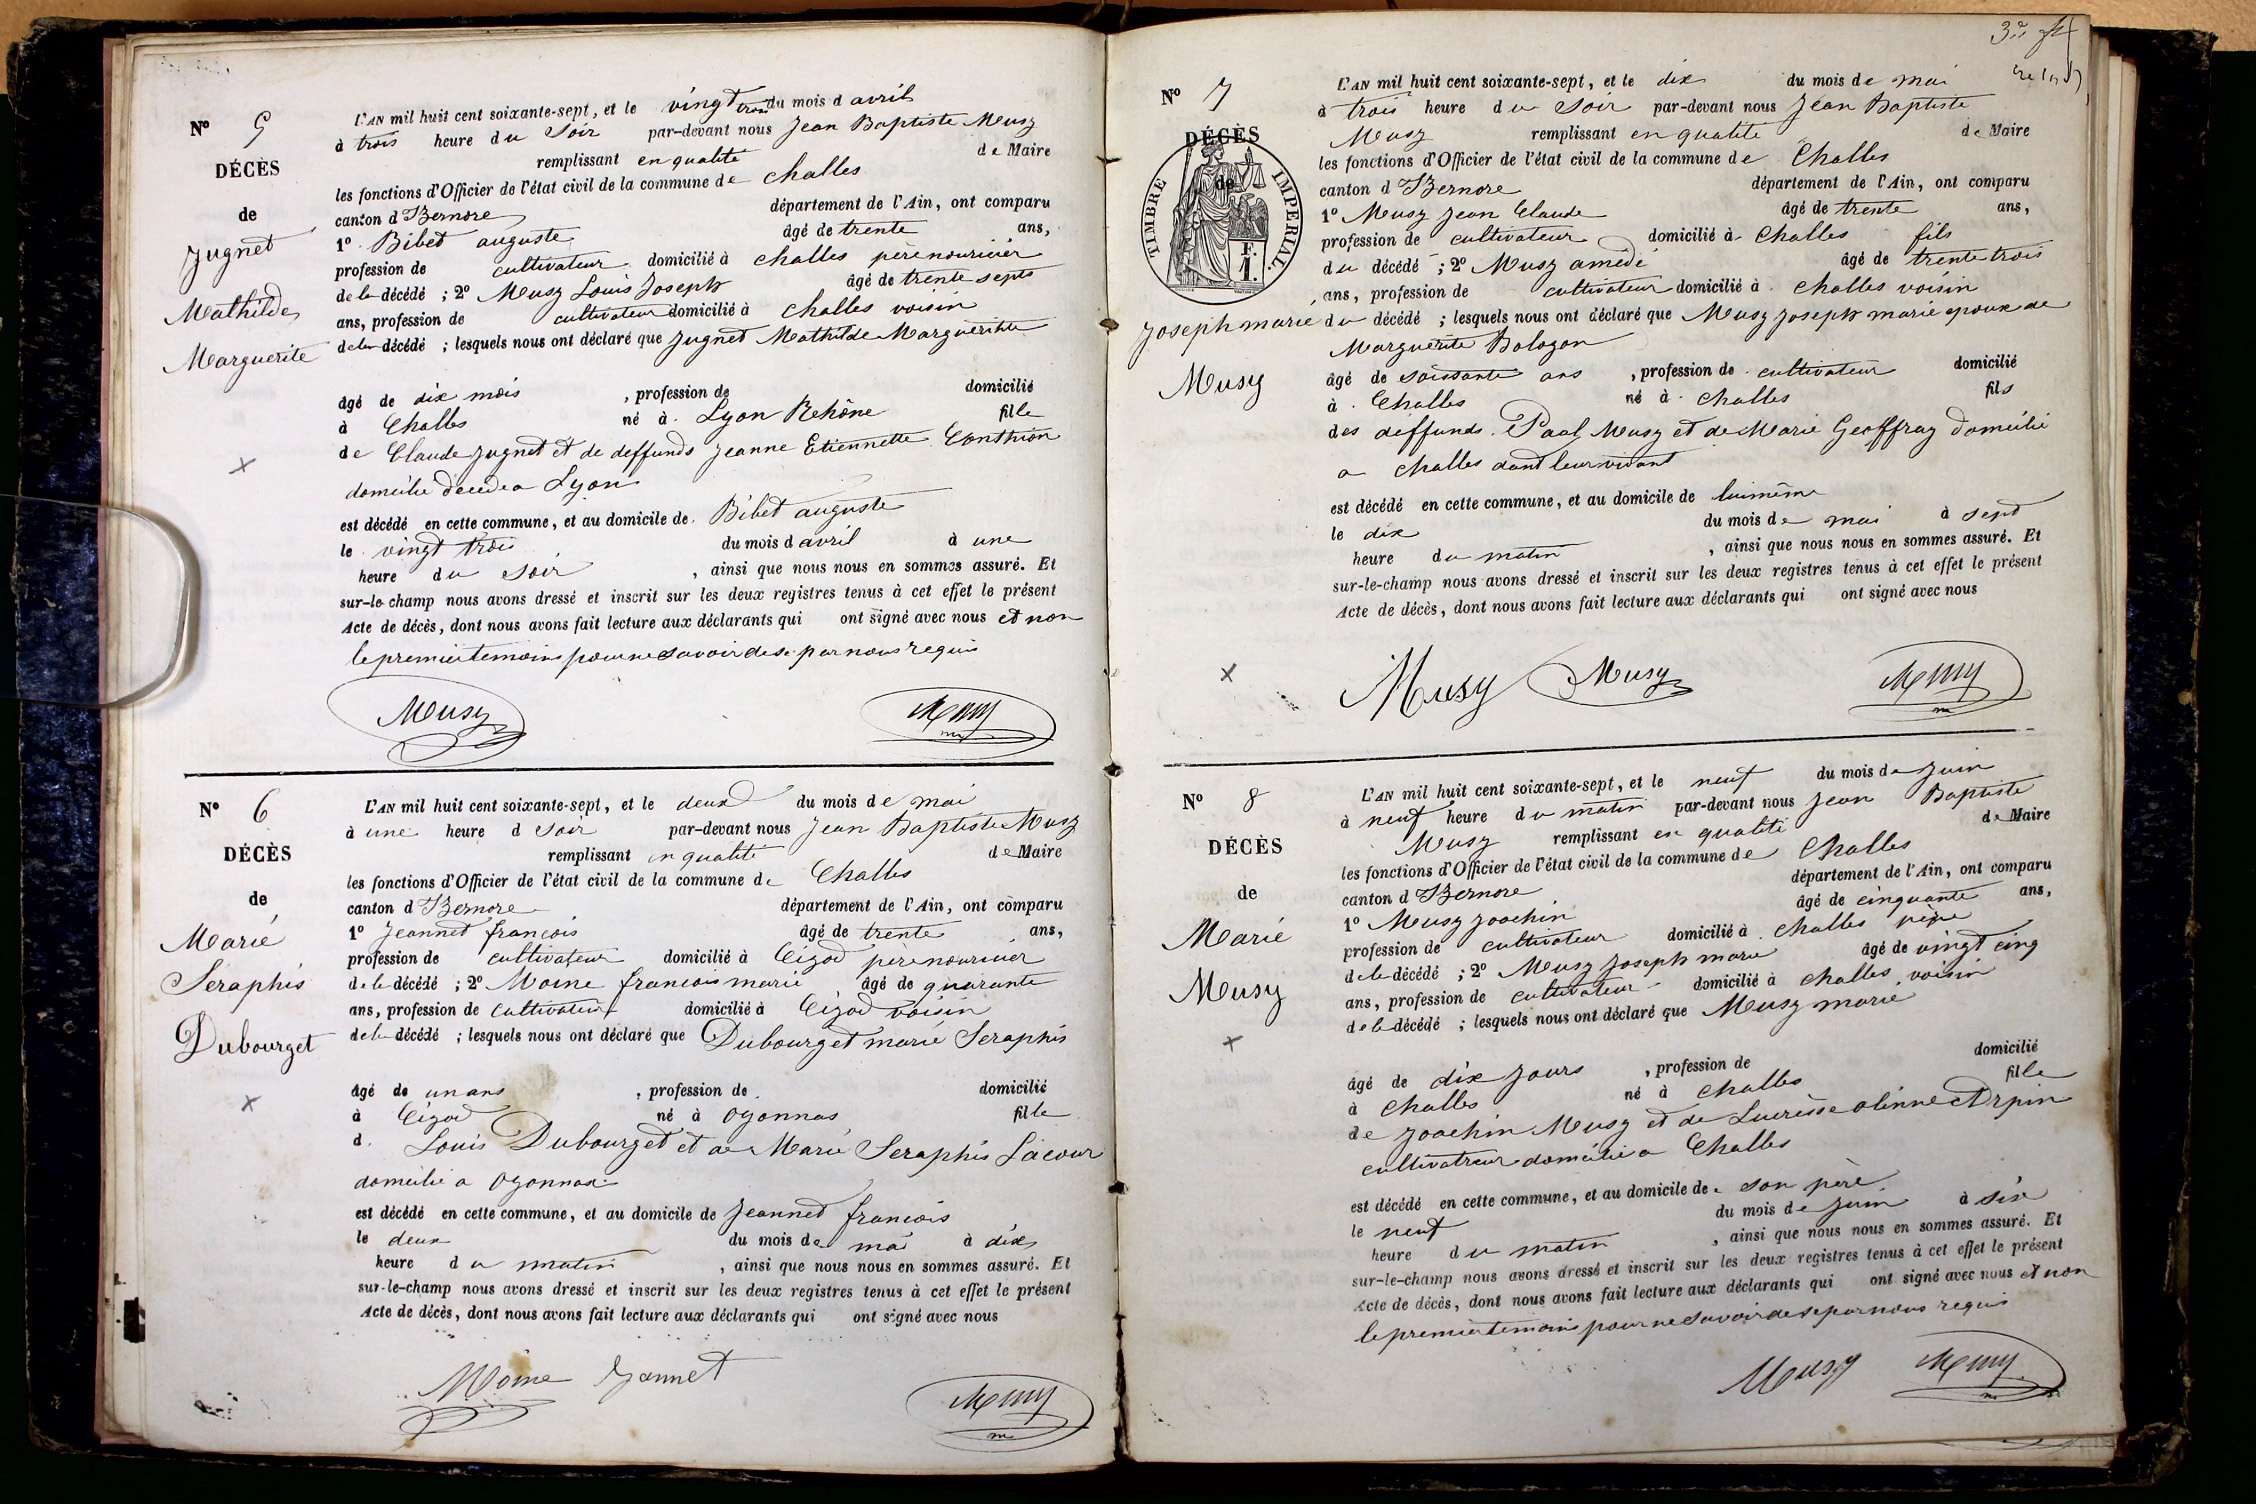 N° 5
DÉCÈS
de
Jugnet
Mathilde
Marguerite
L'AN mil huit cent soixante-sept, et le vingt trois du mois d avril
à trois heure du Soir par-devant nous Jean Baptiste Musy
remplissant en qualité de Maire
les fonctions d'Officier de l'état civil de la commune de Challes
canton d Izernore département de l'Ain, ont comparu
1° Bibet auguste âgé de trente ans,
profession de cultivateur domicilié à challes père nouricier
de la décédé ; 2° Musy Louis Joseph âgé de trente septs
ans, profession de cultivateur domicilié à challes voisin
de la décédé ; lesquels nous ont déclaré que Jugnet Mathilde Marguerihte
âgé de dix mois , profession de domicilié
à Challes né à Lyon Rehône fille
de Claude Jugnet et de deffunds Jeanne Etiennette Conthion
domicilie decede a Lyon
est décédé en cette commune, et au domicile de Bibet auguste
le vingt trois du mois d avril à une
heure du soir , ainsi que nous nous en sommes assuré. Et
sur-le-champ nous avons dressé et inscrit sur les deux registres tenus à cet effet le présent
Acte de décès, dont nous avons fait lecture aux déclarants qui ont signé avec nous et non
le premier temoins pour ne savoir de se par nous requis
Musy Musy
N° 6
DÉCÈS
de
Marie
Seraphis
Dubourget
L'AN mil huit cent soixante-sept, et le deux du mois de mai
à une heure d soir par-devant nous Jean Baptiste Musy
remplissant en qualité de Maire
les fonctions d'Officier de l'état civil de la commune de Challes
canton d Izernore département de l'Ain, ont comparu
1° Jeannet françois âgé de trente ans,
profession de cultivateur domicilié à Cizod père nouricier
de la décédé ; 2° Moine francois marie âgé de quarante
ans, profession de cultivateur domicilié à Cizod voisin
de la décédé ; lesquels nous ont déclaré que Dubourget marie Seraphis
âgé de un ans , profession de domicilié
à Cizod né à oyonnas fille
d Louis Dubourget et de Marie Seraphis Lacour
domicilie a oyonnas
est décédé en cette commune, et au domicile de Jeannet francois
le deux du mois de mai à dix
heure du matin , ainsi que nous nous en sommes assuré. Et
sur-le-champ nous avons dressé et inscrit sur les deux registres tenus à cet effet le présent
Acte de décès, dont nous avons fait lecture aux déclarants qui ont signé avec nous
Moine Jannet Musy
3e
N° 7
DÉCÈS
de
TIMBRE IMPERIAL.
F.
1.
Joseph marie
Musy
L'AN mil huit cent soixante-sept, et le dix du mois de mai
à trois heure du Soir par-devant nous Jean Baptiste
Musy remplissant en qualite de Maire
les fonctions d'Officier de l'état civil de la commune de Challes
canton d Izernore département de l'Ain, ont comparu
1° Musy Jean Claude âgé de trente ans,
profession de cultivateur domicilié à Challes fils
du décédé ; 2° Musy amedé âgé de trente trois
ans, profession de cultivateur domicilié à challes voisin
du décédé ; lesquels nous ont déclaré que Musy Joseph marie epoux de
Marguerite Bologon
âgé de soissante ans , profession de cultivateur domicilié
à Challes né à challes fils
des deffunds Paul Musy et de Marie Geoffray domicilie
a challes dant leur vivant
est décédé en cette commune, et au domicile de luimême
le dix du mois de mai à sept
heure du matin , ainsi que nous nous en sommes assuré. Et
sur-le-champ nous avons dressé et inscrit sur les deux registres tenus à cet effet le présent
Acte de décès, dont nous avons fait lecture aux déclarants qui ont signé avec nous
Musy Musy Musy
N° 8
DÉCÈS
de
Marie
Musy
L'AN mil huit cent soixante-sept, et le neuf du mois de Juin
à neuf heure du matin par-devant nous Jean Baptiste
Musy remplissant en qualité de Maire
les fonctions d'Officier de l'état civil de la commune de Challes
canton d Izernore département de l'Ain, ont comparu
1° Musy Joachin âgé de cinquante ans,
profession de cultivateur domicilié à challes père
de la décédé ; 2° Musy Joseph marie âgé de vingt cinq
ans, profession de cultivateur domicilié à challes voisin
de la décédé ; lesquels nous ont déclaré que Musy marie
âgé de dix Jours , profession de domicilié
à Challes né à challes fille
de Joachin Musy et de Lucrèsse olinne Arpin
cultivatreur domicilie a Challes
est décédé en cette commune, et au domicile de son père
le neuf du mois de Juin à six
heure du matin , ainsi que nous nous en sommes assuré. Et
sur-le-champ nous avons dressé et inscrit sur les deux registres tenus à cet effet le présent
Acte de décès, dont nous avons fait lecture aux déclarants qui ont signé avec nous et non
le premier temoins pour ne savoir de se par nous requis
Musy Musy